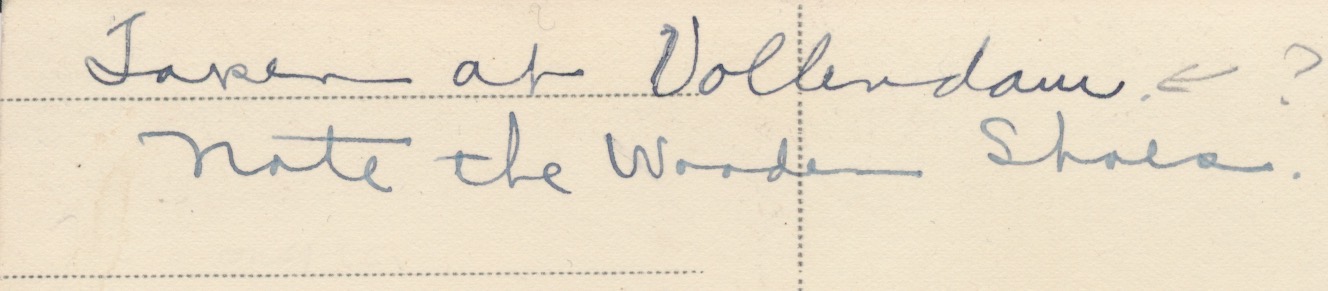 Taken at Vollendam. ← ?
Note the Wooden Shoes.